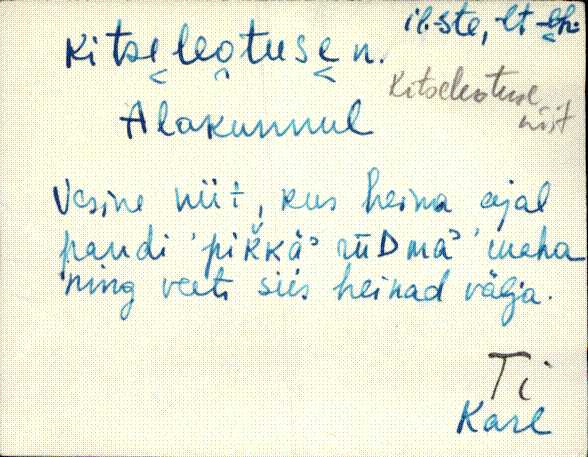 Kitseleotuse n. il-ste, -lt
Kitseleotuse
niit
Alakunnul
Vesine niit, kus heina ajal
pandi 'pikkä' rüDmä' maha
ning veeti siis heinad välja.
Ti
Karl